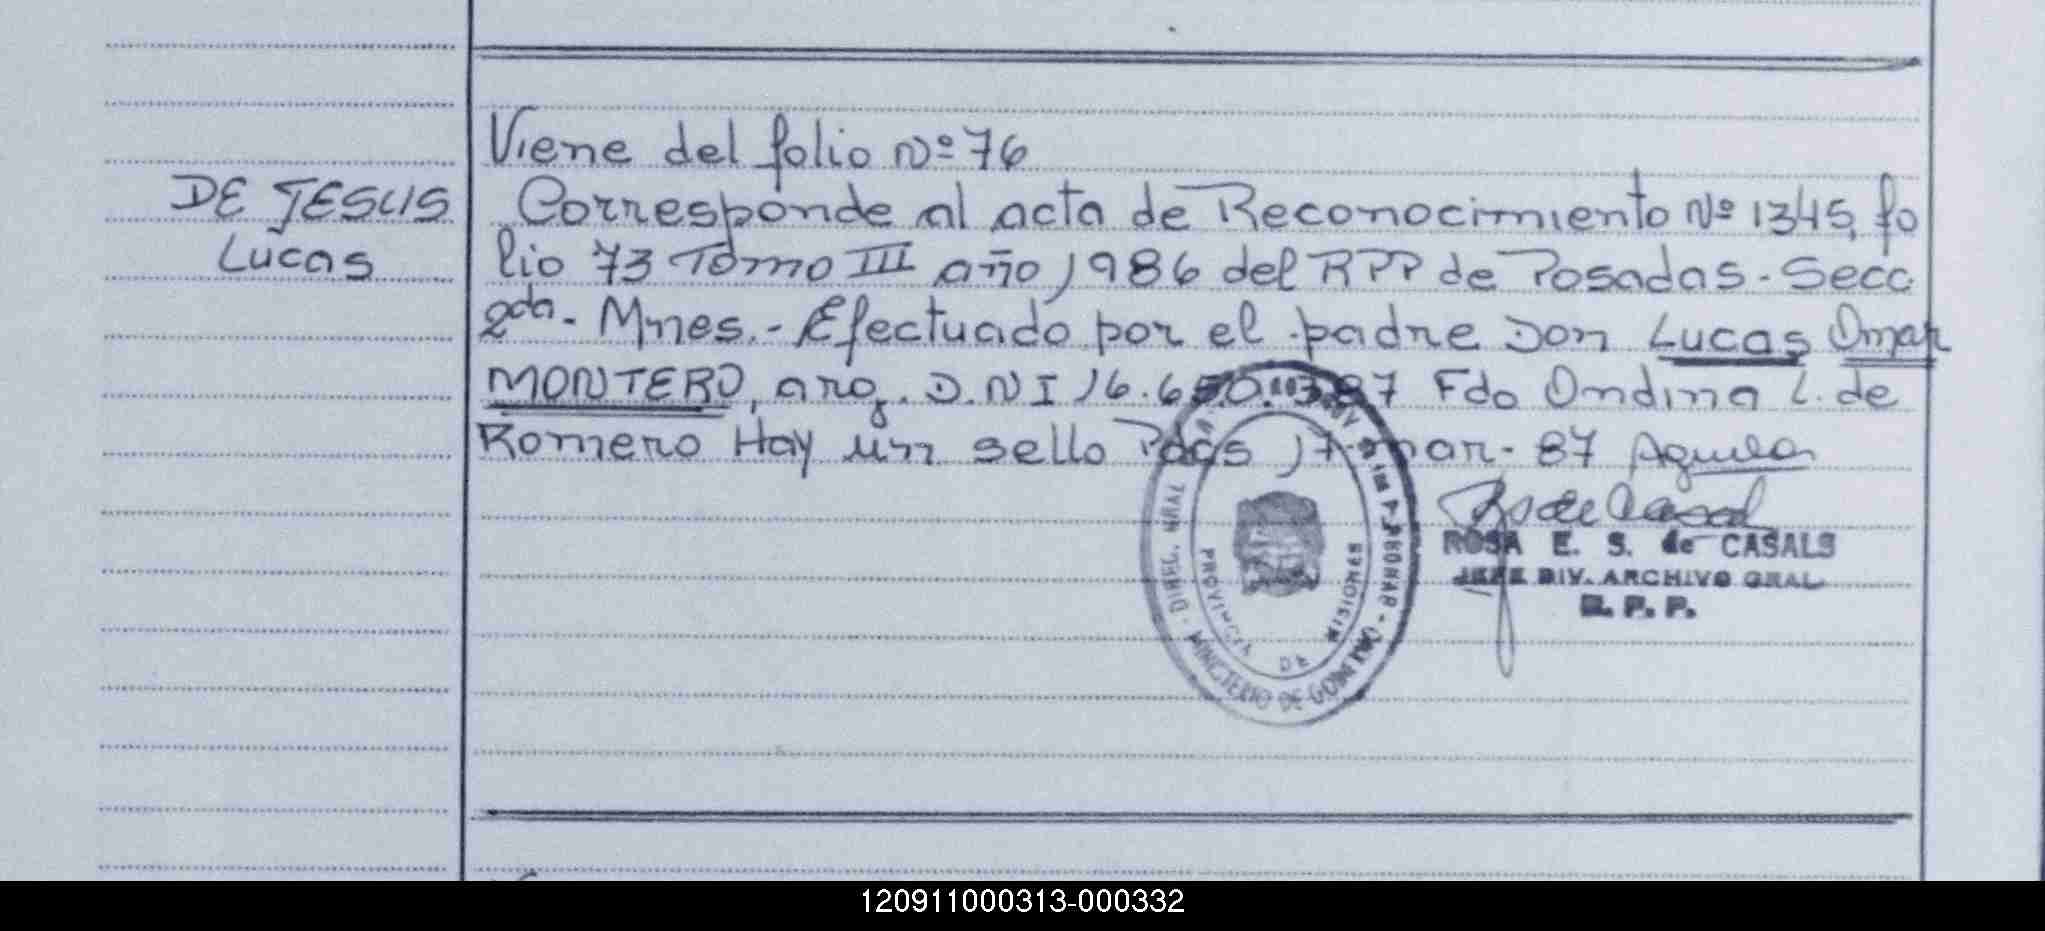 Viene del folio Nº 76
DE JESUS
Lucas
Corresponde al acta de Reconocimiento Nº 1345, fo
lio 73 Tomo III año 1986 del RPP de Posadas - Secc
2da - Mnes. - Efectuado por el padre Don Lucas Omar
MONTERO, arg. D.N I 16.650.387 Fdo Ondina L. de
Romero Hay un sello Pdas 17 mar - 87 Aguila
ROSA E. S. de CASALS
JEFE DIV. ARCHIVO GRAL
R. P. P.
DIREC. GRAL
MINISTERIO DE GOBIERNO
PROVINCIA DE MISIONES
120911000313-000332